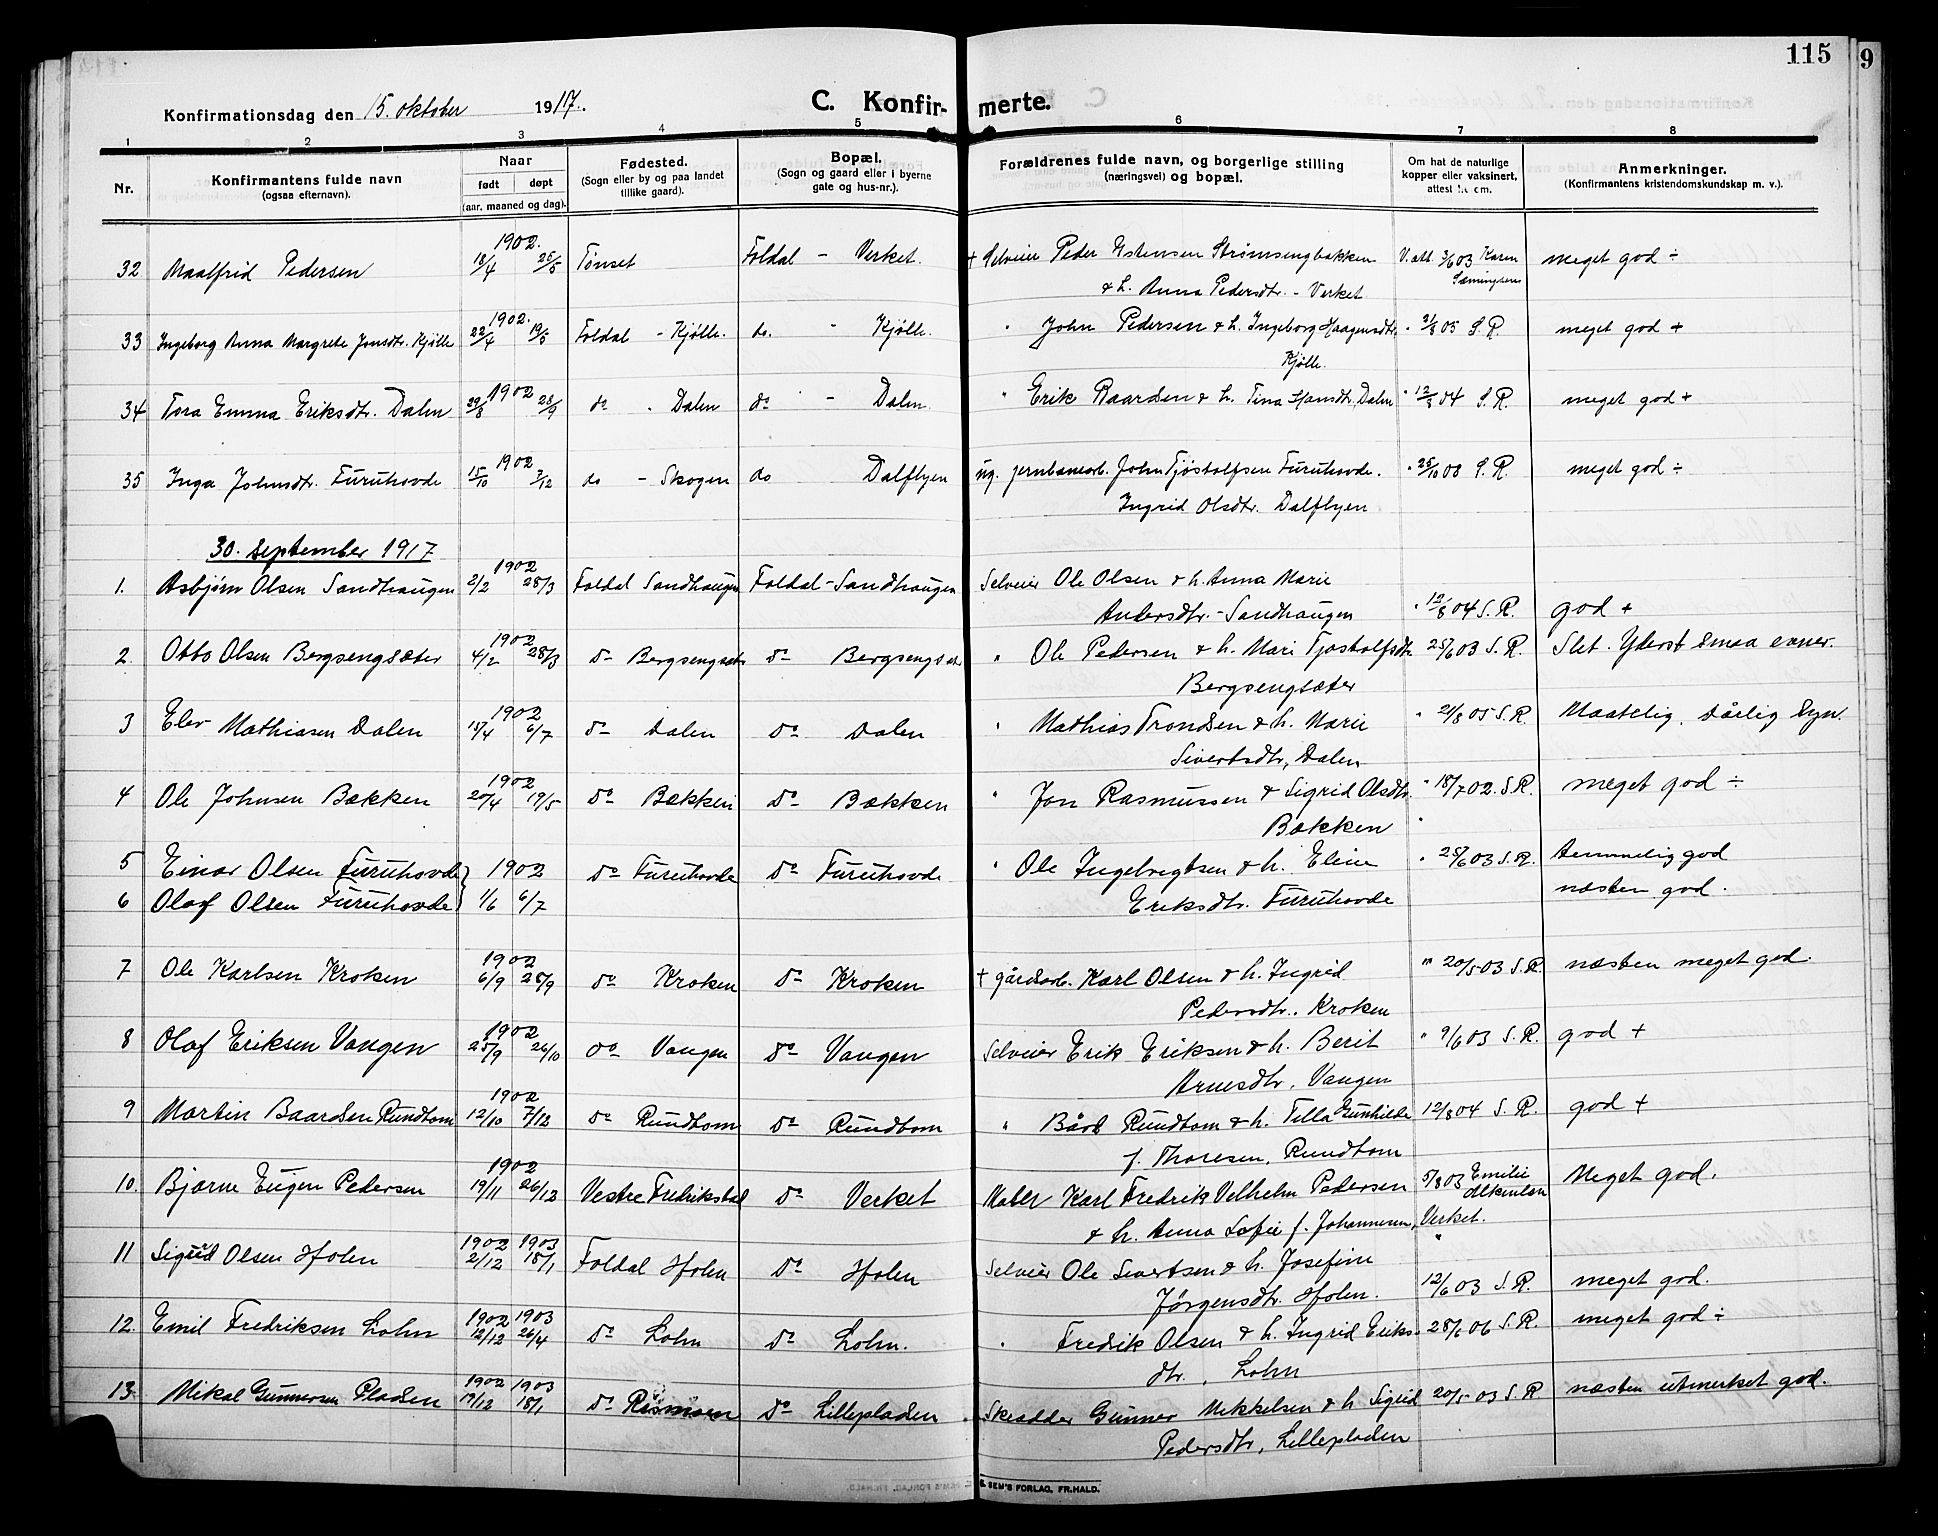 115
9
Konfirmationsdag den 15. oktober 1917.
C. Konfirmerte.
1 2 3 4 5 6 7 8
Nr.
Konfirmantens fulde navn
(ogsaa efternavn).
Naar
født døpt
(aar, maaned og dag).
Fødested.
(Sogn eller by og paa landet
tillike gaard).
Bopæl.
(Sogn og gaard eller i byerne
gate og hus-nr.).
Forældrenes fulde navn, og borgerlige stilling
(næringsvei) og bopæl.
Om hat de naturlige
kopper eller vaksinert,
attest
Anmerkninger.
(Konfirmantens kristendomskundskap m. v.).
1902.
32 Maalfrid Pedersen 18/4 25/5 Tønset Foldal - Verket. + Selveier Peder Estensen Strømsengbakken V. att. 3/6 03 Karen Sæmingsen meget god ÷
& h. Anna Pedersdtr. - Verket
1902.
33 Ingeborg Anna Margrete Jonsdtr. Kjølle 22/4 19/5 Foldal - Kjølle. do. " Kjølle. " John Pedersen & h. Ingeborg Haagensdtr. " 21/8 05 S. R. meget god +
Kjølle.
1902
34 Tora Emma Eriksdtr. Dalen 29/8 28/9 do - Dalen do - Dalen. " Erik Baardsen & h. Tina Hansdtr. Dalen " 12/8 04 S. R. meget god +
1902
35 Inga Johnsdtr. Furuhovde 15/10 7/12 do - Skogen do Dalflyen ug. jernbanearb. John Tjøstolfsen Furuhovde. " 25/10 08 S. R. meget god ÷
Ingrid Olsdtr. Dalflyen
30. september 1917
1902
1. Asbjørn Olsen Sandhaugen 2/2 28/3 Foldal Sandhaugen Foldal - Sandhaugen Selveier Ole Olsen & h. Anna Marie
Andersdtr. - Sandhaugen " 12/8 04 S. R. god +
1902
2. Otto Olsen Bergsengsæter 4/2 28/3 do Bergsengsæter do Bergsengsæter " Ole Pedersen & h. Mari Tjøstolfsdtr. 25/6 03 S. R. Slet. Yderst smaa evner.
Bergsengsæter
1902
3 Elev Mathiasen Dalen 15/4 6/7 do Dalen do Dalen " Mathias Trondsen & h. Marie " 21/8 05 S. R. Maatelig. Dårlig syn.
Sivertsdtr, Dalen
1902
4 Ole Johnsen Bækken 20/4 19/5 do Bækken do Bækken " Jon Rasmussen & Sigrid Olsdtr. " 18/7 02. S. R. meget god ÷
Bækken "
5 Einar Olsen Furuhovde 1902 do Furuhovde do Furuhovde " Ole Ingebrigtsen & h. Eline " 25/6 03 S. R. temmelig god
6 Olaf Olsen Furuhovde 1/6 6/7 Eriksdtr. Furuhovde næsten god.
1902
7 Ole Karlsen Kroken 6/9 28/9 do Kroken do Kroken + gårdarb. Karl Olsen & h. Ingrid " 20/5 03 S. R. næsten meget god.
Pedersdtr. Kroken
1902
8 Olaf Eriksen Vangen 25/9 26/10 do Vangen do Vangen Selveier Erik Eriksen & h. Berit " 9/6 03 S. R. god +
Arnesdtr, Vangen
1902
9 Martin Baardsen Rundtom 12/10 7/12 do Rundtom do Rundtom " Bård Rundtom & h. Tilla Gunhilde 12/8 04 S. R. god +
f. Thoresen, Rundtom
1902
10. Bjarne Eugen Pedersen 19/11 26/12 Vestre Fredrikstad do Verket Maler Karl Fredrik Vilhelm Pedersen 5/8 03 Emilie Meget god.
& h. Anna Sofie f. Johannesen, Verket.
1902 1903
11 Sigurd Olsen Holen 2/12 18/1 Foldal Holen do Holen Selveier Ole Sivertsen & h. Josefine
Jørgensdtr. Holen. 12/6 03 S. R. meget god.
1902 1903
12. Emil Fredriksen Lohn 12/12 26/4 do Lohn do Lohn. " Fredrik Olsen & h. Ingrid Eriks- 28/6 06 S. R. meget god ÷
dtr., Lohn
1902 1903
13. Mikal Gunnersen Pladsen 19/12 18/1 do Rismoen do Lillepladsen Skrædder Gunner Mikkelsen & h Sigrid 20/5 03 S. R næsten utmerket god.
Pedersdtr, Lillepladsen
SEM'S FORLAG, FR.HALD.